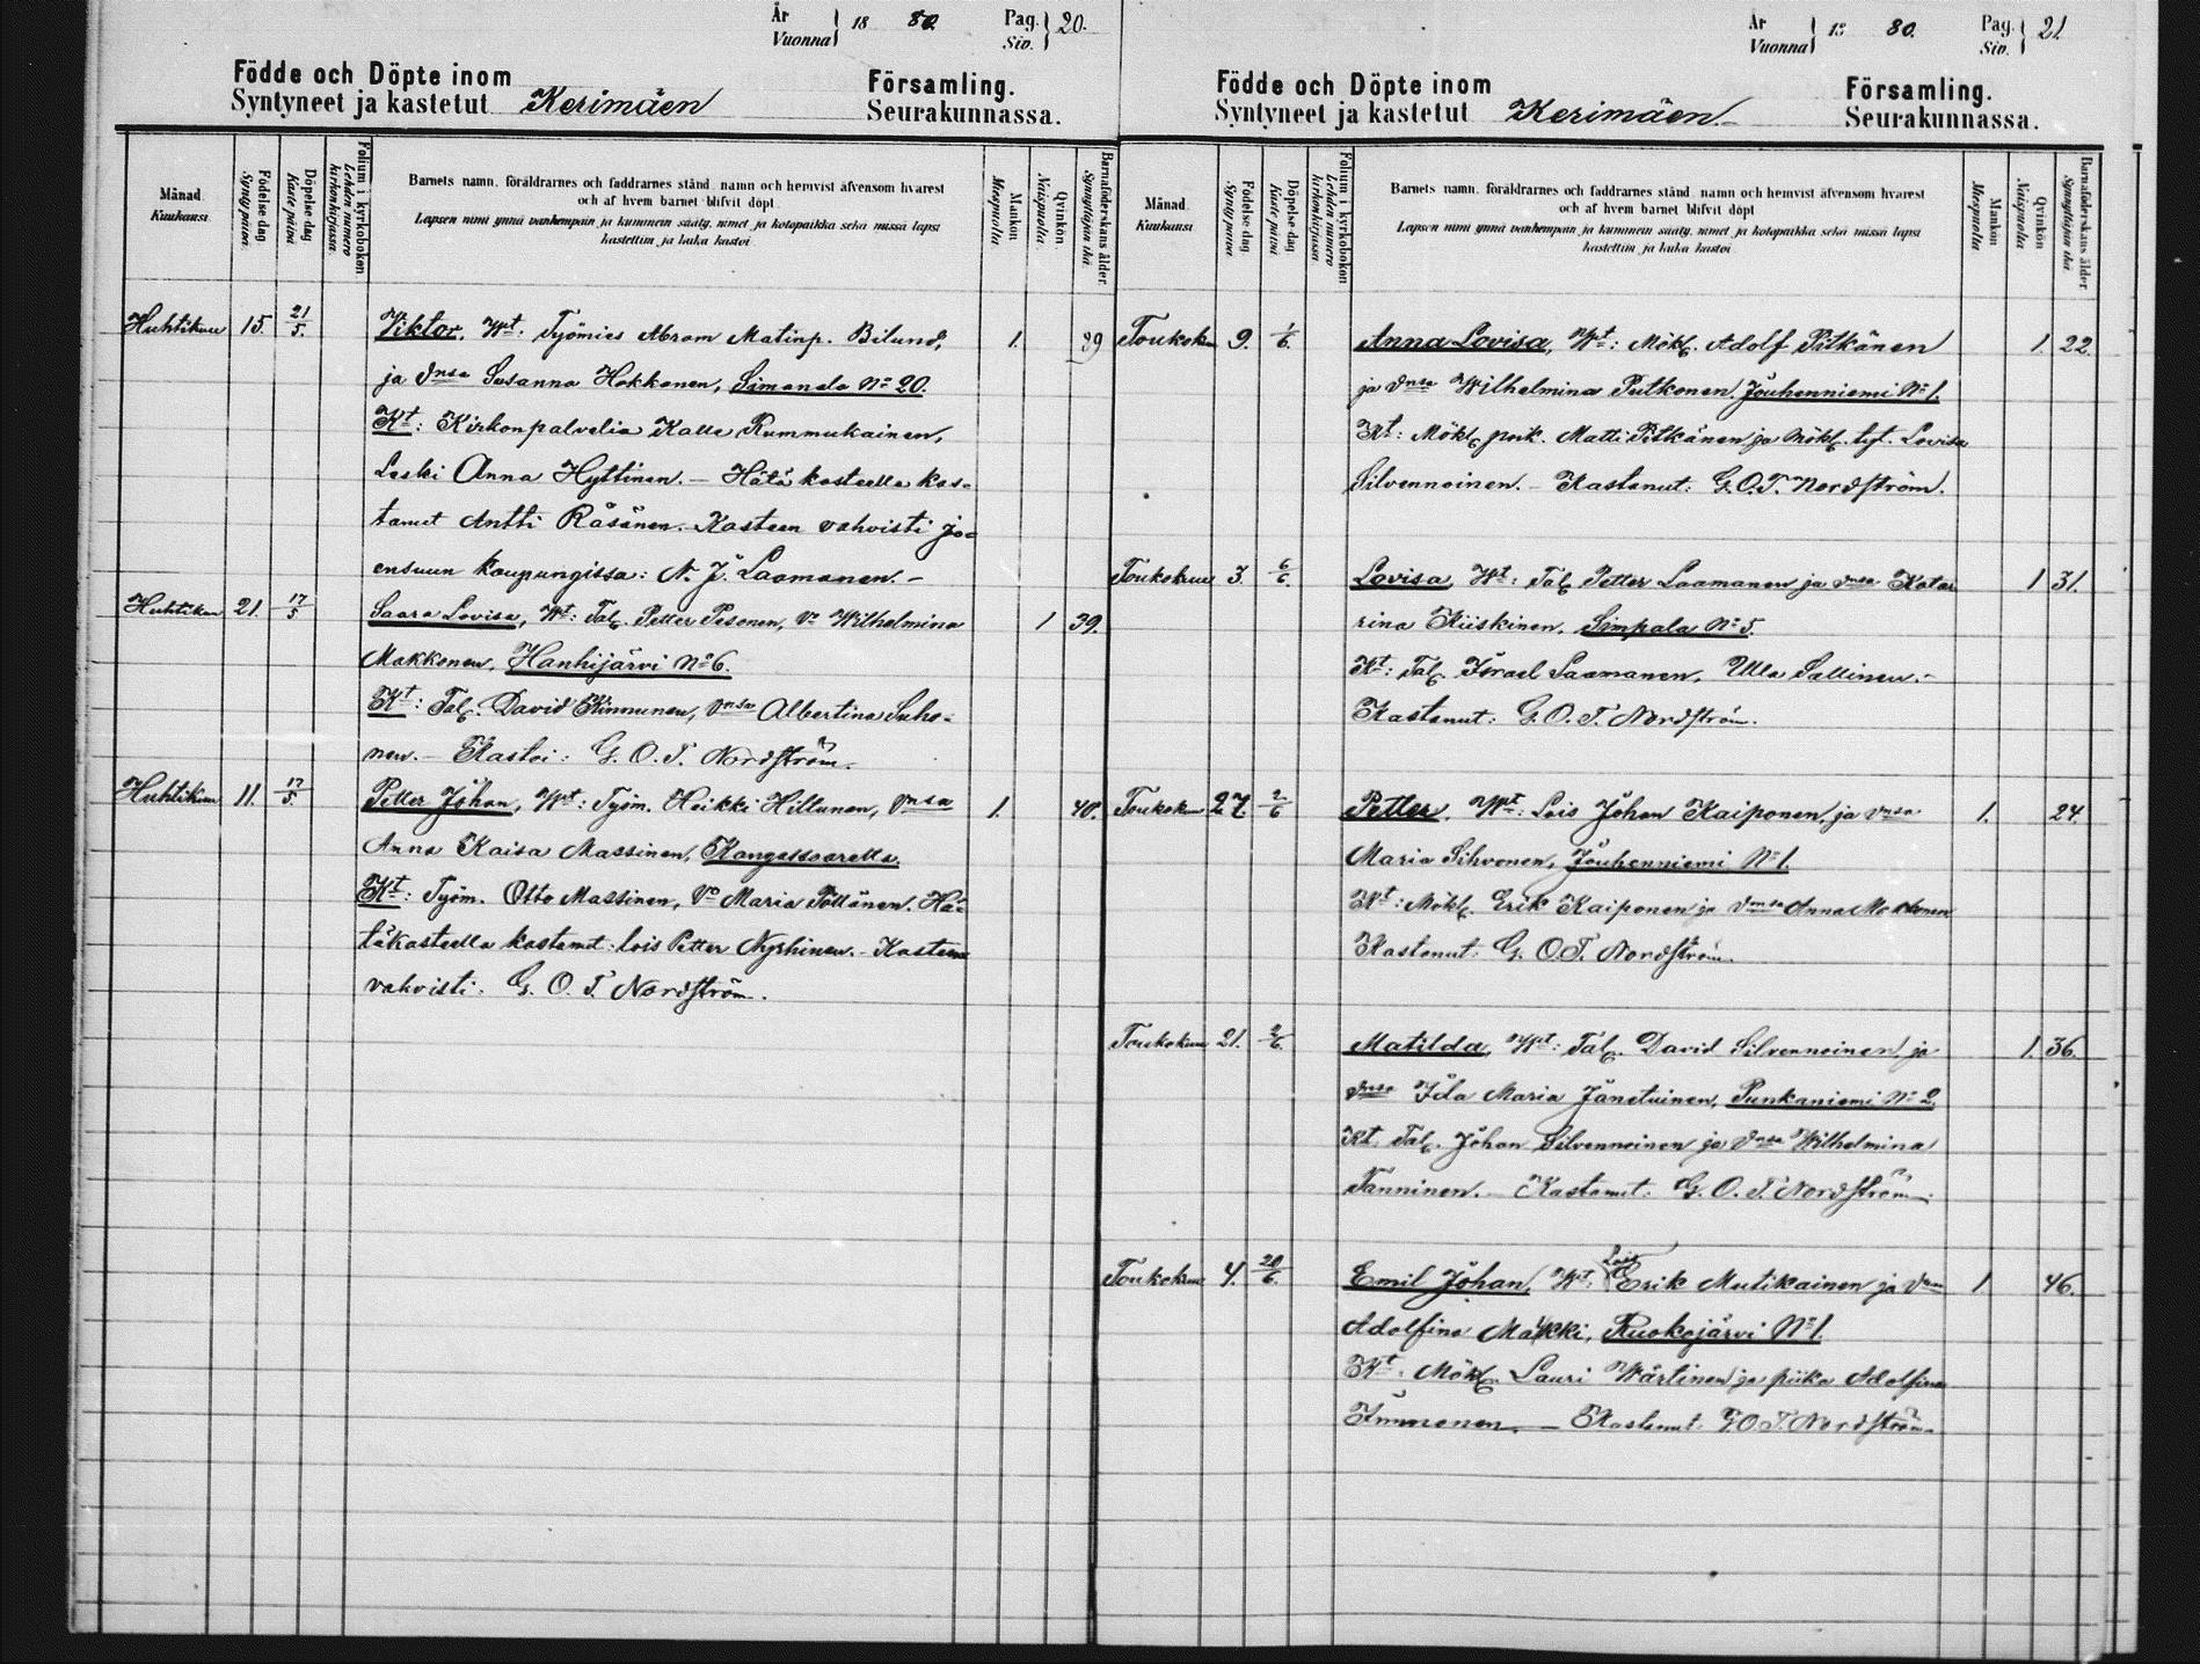 År
Vuonna } 18 80. Pag. } 20.
Siv.
Födde och Döpte inom Församling.
Syntyneet ja kastetut Kerimäen Seurakunnassa.
Månad
Kuukausi
Födelse dag
Synty päivä
Döpelse dag
Kaste päivä
Folium i kyrkoboken
Lehden numero
kirkonkirjassa
Barnets namn, föräldrarnes och faddrarnes stånd, namn och hemvist äfvensom hvarest
och af hvem barnet blifvit döpt
Lapsen nimi ynnä vanhempain ja kummein sääty, nimet ja kotopaikka sekä missä lapsi
kastettiin ja kuka kastoi
Mankön
Miespuolta
Qvinkön
Naispuolta
Barnaföderskans ålder.
Synnyttäjän ikä.
Huhtikuu 15. 21/5. Viktor, Wt: Työmies Abram Matinp. Bilund, 1. 39
ja vnsa Susanna Hokkanen, Simanala No 20.
Kt: Kirkonpalvelia Kalle Rummukainen,
Leski Anna Hyttinen. - Hätä kasteella kas-
tanut Antti Räsänen. Kasteen vahvisti Jo-
ensuun kaupungissa: N. J. Laamanen. -
Huhtikuu 21. 17/5 Saara Lovisa, Wt: Tal. Petter Pesonen, Vo Wilhelmina 1 39.
Makkonen, Hanhijärvi No 6.
Kt: Tal. David Kinnunen, Vnsa Albertina Suho-
nen. - Kastoi: G. O. T. Nordström.
Huhtikuu 11. 17/5. Petter Johan, Wt: Työm. Heikki Hiltunen, Vnsa 1. 40.
Anna Kaisa Massinen, Kangassaarella.
Kt: Työm. Otto Massinen, Vo Maria Pöllänen. Hä-
täkasteella kastanut: lois Petter Nyrhinen. - Kasteen
vahvisti: G. O. T. Nordström.
År
Vuonna } 18 80. Pag. } 21.
Siv.
Födde och Döpte inom Församling.
Syntyneet ja kastetut Kerimäen. Seurakunnassa.
Månad
Kuukausi
Födelse dag
Synty päivä
Döpelse dag
Kaste päivä
Folium i kyrkoboken
Lehden numero
kirkonkirjassa
Barnets namn, föräldrarnes och faddrarnes stånd, namn och hemvist äfvensom hvarest
och af hvem barnet blifvit döpt
Lapsen nimi ynnä vanhempain ja kummein sääty, nimet ja kotopaikka sekä missä lapsi
kastettiin ja kuka kastoi
Mankön
Miespuolta
Qvinkön
Naispuolta
Barnaföderskans ålder.
Synnyttäjän ikä.
Toukoku 9. 1/6. Anna Lovisa, Wt: Mökl. Adolf Pitkänen 1. 22.
ja vnsa Wilhelmina Putkonen, Jouhenniemi No 1.
Kt: Mökl. poik. Matti Pitkänen ja Mökl. tyt. Lovisa
Silvennoinen. - Kastanut: G. O. T. Nordström.
Toukokuu 3. 6/6. Lovisa, Wt: Tal. Petter Laamanen ja vnsa Kata- 1 31.
rina Kiiskinen, Simpala No 5.
Kt: Tal. Israel Laamanen, Ulla Sallinen. -
Kastanut: G. O. T. Nordström.
Toukoku 27. 2/6 Petter, Wt: Lois Johan Kaiponen, ja vnsa 1. 24.
Maria Sihvonen, Jouhenniemi No 1.
Kt: Mökl. Erik Kaiponen ja vnsa Anna
Kastanut: G. O. T. Nordström.
Toukokuu 21. 2/6. Matilda, Wt: Tal. David Silvennoinen ja 1. 36.
vnsa Ida Maria Jänetuinen, Punkaniemi No 2.
Kt. Tal. Johan Silvennoinen ja vnsa Wilhelmina
Tanninen. - Kastanut: G. O. T. Nordström.
Toukokuu 4. 20/6. Emil Johan, Wt: Lois Erik Mutikainen ja vnsa 1 46.
Adolfina Ruokojärvi No 1.
Kt: Mökl. Lauri Wärtinen ja piika Adolfina
Immonen. - Kastanut: G. O. T. Nordström.